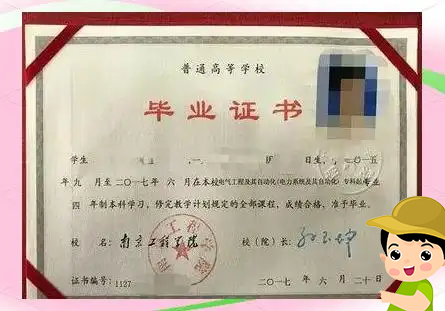 普通高等学校
毕业证书
学生 日生，二〇一五
年九月至二〇一七年六月在本校电气工程及其自动化(电力系统及其自动化)专科起专业
四年制本科学习，修完教学计划规定的全部课程，成绩合格，准予毕业。
校名：南京工程学院 校（院）长：
证书编号：1127 二〇一七年六月二十日